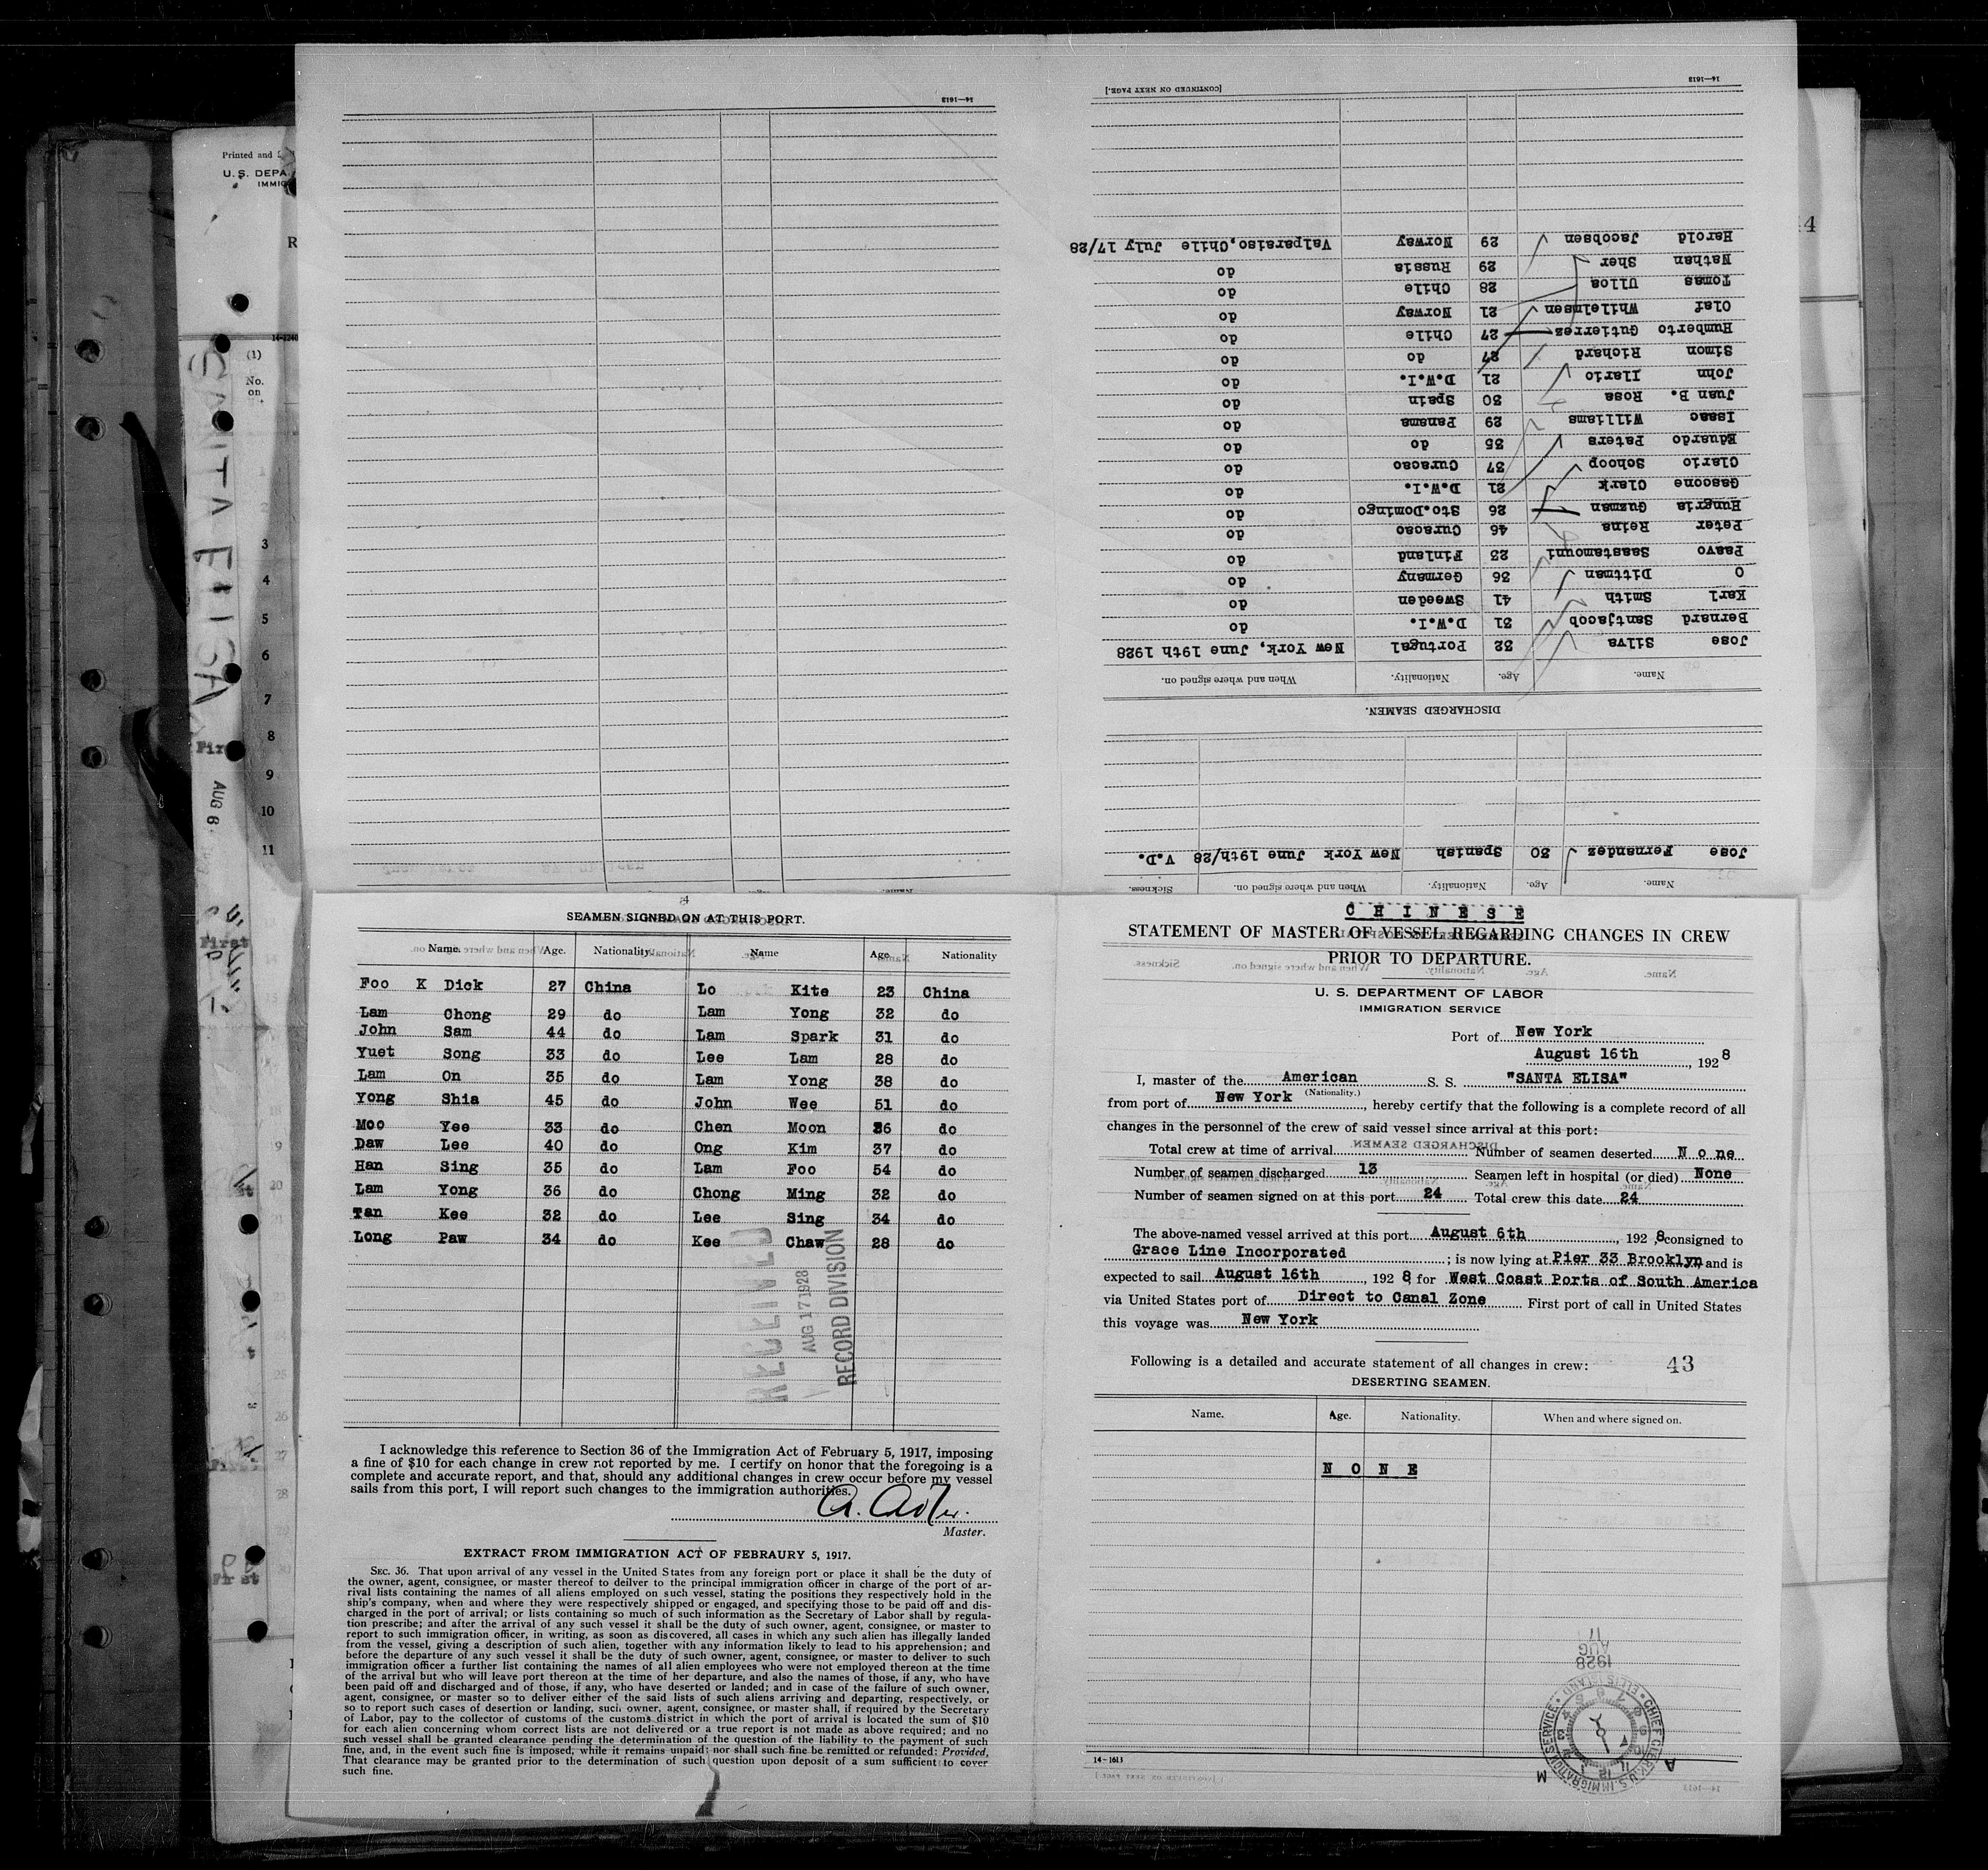 Printed and
U. S. DEPA
IMMIG
R
14-1240
(1)
No.
on
SANTA ELISA
3
4
5
6
7
8
9
10
11
AUG 6
First
14—1613
14—1613
[CONTINUED ON NEXT PAGE.]
Name. Age. Nationality. When and where signed on. Sickness.
Jose Fernandez 30 Spanish New York June 19th/28 V.D.
DISCHARGED SEAMEN.
Name. Age. Nationality. When and where signed on.
Jose Silva 32 Portugal New York, June 19th 1928
Bernard Santjacob 31 D.W.I. do
Karl Smith 41 Sweden do
O Dittman 36 Germany do
Paavo Saastamouni 23 Finland do
Peter Reina 46 Curacao do
Hungria Guzman 26 Sto.Domingo do
Gascone Clark 21 D.W.I. do
Clario Schoop 37 Curacao do
Eduardo Paters 35 do do
Isaac Williams 29 Panama do
Juan B. Rosa 30 Spain do
John Ilario 21 D.W.I. do
Simon Richard 27 do do
Humberto Gutierrez 27 Chile do
Olaf Whilelmsen 21 Norway do
Tomas Ulloa 28 Chile do
Nathan Sher 29 Russia do
Harold Jacobsen 29 Norway Valparaiso,Chile July 17/28
4
SEAMEN SIGNED ON AT THIS PORT.
Name. Age. Nationality. Name Age. Nationality
Foo K Dick 27 China Lo Kite 23 China
Lam Chong 29 do Lam Yong 32 do
John Sam 44 do Lam Spark 31 do
Yuet Song 33 do Lee Lam 28 do
Lam On 35 do Lam Yong 38 do
Yong Shia 45 do John Wee 51 do
Moo Yee 33 do Chen Moon 36 do
Daw Lee 40 do Ong Kim 37 do
Han Sing 35 do Lam Foo 54 do
Lam Yong 36 do Chong Ming 32 do
Tan Kee 32 do Lee Sing 34 do
Long Paw 34 do Kee Chaw 28 do
RECEIVED
AUG 17 1928
RECORD DIVISION
I acknowledge this reference to Section 36 of the Immigration Act of February 5, 1917, imposing
a fine of $10 for each change in crew not reported by me. I certify on honor that the foregoing is a
complete and accurate report, and that, should any additional changes in crew occur before my vessel
sails from this port, I will report such changes to the immigration authorities.
Master.
EXTRACT FROM IMMIGRATION ACT OF FEBRAURY 5, 1917.
SEC. 36. That upon arrival of any vessel in the United States from any foreign port or place it shall be the duty of
the owner, agent, consignee, or master thereof to deilver to the principal immigration officer in charge of the port of ar-
rival lists containing the names of all aliens employed on such vessel, stating the positions they respectively hold in the
ship's company, when and where they were respectively shipped or engaged, and specifying those to be paid off and dis-
charged in the port of arrival; or lists containing so much of such information as the Secretary of Labor shall by regula-
tion prescribe; and after the arrival of any such vessel it shall be the duty of such owner, agent, consignee, or master to
report to such immigration officer, in writing, as soon as discovered, all cases in which any such alien has illegally landed
from the vessel, giving a description of such alien, together with any information likely to lead to his apprehension; and
before the departure of any such vessel it shall be the duty of such owner, agent, consignee, or master to deliver to such
immigration officer a further list containing the names of all alien employees who were not employed thereon at the time
of the arrival but who will leave port thereon at the time of her departure, and also the names of those, if any, who have
been paid off and discharged and of those, if any, who have deserted or landed; and in case of the failure of such owner,
agent, consignee, or master so to deliver either of the said lists of such aliens arriving and departing, respectively, or
so to report such cases of desertion or landing, such owner, agent, consignee, or master shall, if required by the Secretary
of Labor, pay to the collector of customs of the customs district in which the port of arrival is located the sum of $10
for each alien concerning whom correct lists are not delivered or a true report is not made as above required; and no
such vessel shall be granted clearance pending the determination of the question of the liability to the payment of such
fine, and, in the event such fine is imposed, while it remains unpaid; nor shall such fine be remitted or refunded: Provided,
That clearance may be granted prior to the determination of such question upon deposit of a sum sufficient to cover
such fine.
CHINESE
STATEMENT OF MASTER OF VESSEL REGARDING CHANGES IN CREW
PRIOR TO DEPARTURE.
U. S. DEPARTMENT OF LABOR
IMMIGRATION SERVICE
Port of New York
August 16th, 1928
I, master of the American S. S. "SANTA ELISA"
(Nationality.)
from port of New York, hereby certify that the following is a complete record of all
changes in the personnel of the crew of said vessel since arrival at this port:
Total crew at time of arrival Number of seamen deserted None
Number of seamen discharged 13 Seamen left in hospital (or died) None
Number of seamen signed on at this port 24 Total crew this date 24
The above-named vessel arrived at this port August 6th, 1928, consigned to
Grace Line Incorporated; is now lying at Pier 33 Brooklyn and is
expected to sail August 16th, 1928, for West Coast Ports of South America
via United States port of Direct to Canal Zone First port of call in United States
this voyage was New York
Following is a detailed and accurate statement of all changes in crew: 43
DESERTING SEAMEN.
Name. Age. Nationality. When and where signed on.
NONE
1928
AUG
17
CHIEF CLERK U.S. IMMIGRATION SERVICE
ELLIS ISLAND
A M
14-1613